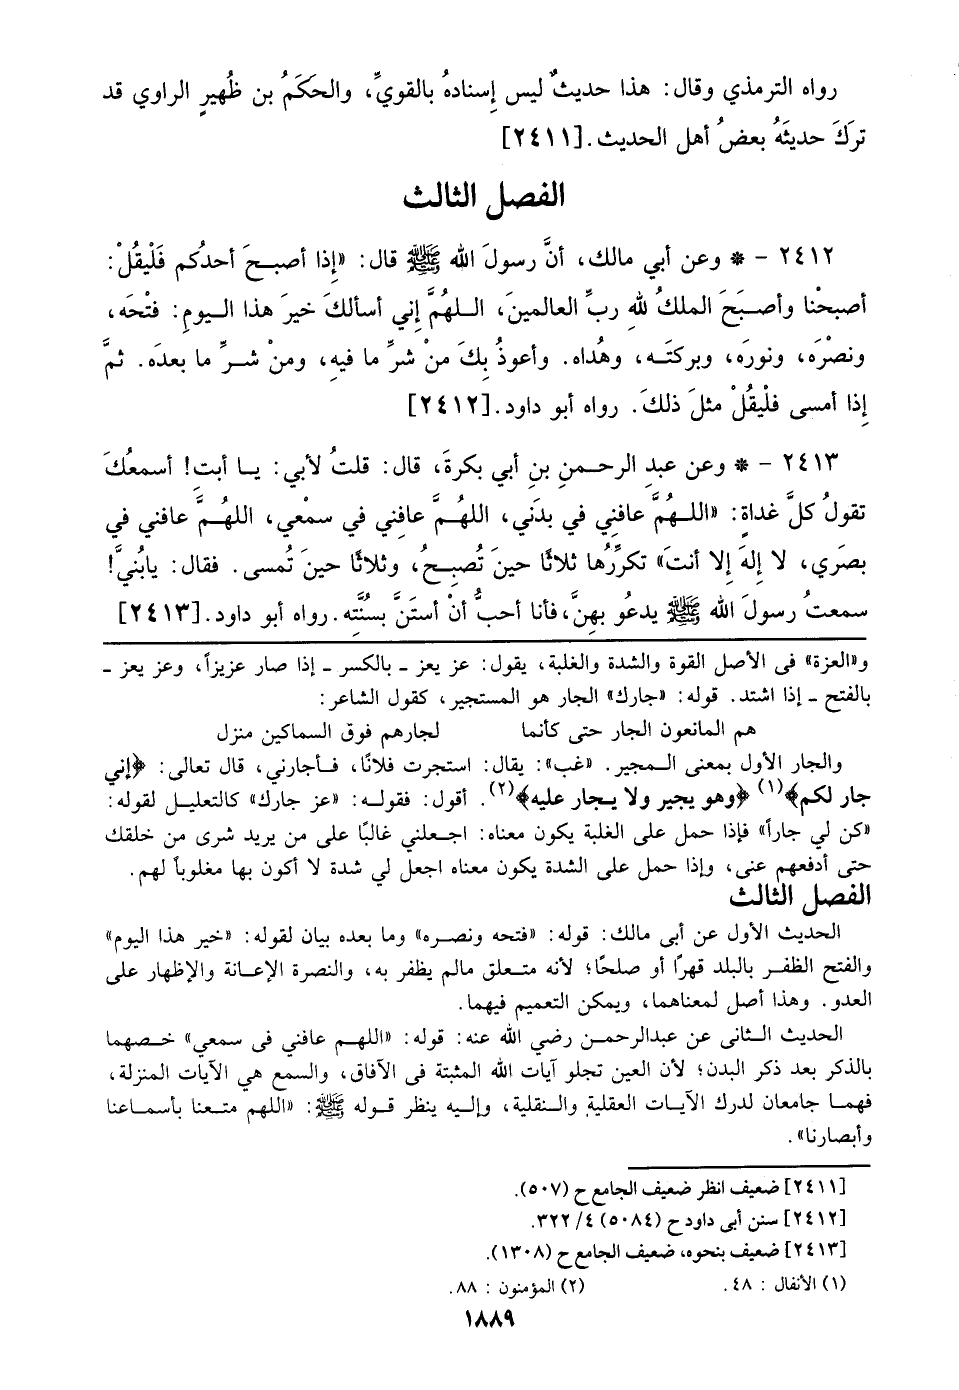 رواه الترمذي وقال: هذا حديثٌ ليس إسنادهُ بالقويِّ، والحكَمُ بن ظُهيرٍ الراوي قد
ترَكَ حديثَهُ بعضُ أهل الحديث. [٢٤١١]
الفصل الثالث
٢٤١٢ - * وعن أبي مالك، أنَّ رسولَ الله ﷺ قال: «إذا أصبحَ أحدُكم فَلْيقُلْ:
أصبحْنا وأصبَحَ الملكُ للهِ ربِّ العالمينَ، اللهُمَّ إني أسألكَ خيرَ هذا اليومِ: فتْحَه،
ونصْرَه، ونورَه، وبركتَه، وهُداه. وأعوذُ بِكَ منْ شرِّ ما فيهِ، ومنْ شرِّ ما بعدَه. ثمَّ
إذا أمسى فلْيقُلْ مثلَ ذلكَ. رواه أبو داود. [٢٤١٢]
٢٤١٣ - * وعن عبدِ الرحمنِ بنِ أبي بكرةَ، قال: قلتُ لأبي: يا أبتِ! أسمعُكَ
تقولُ كلَّ غداةٍ: «اللهُمَّ عافِني في بدَني، اللهُمَّ عافِني في سمْعي، اللهُمَّ عافني في
بصَري، لا إلهَ إلا أنتَ» تكرِّرُها ثلاثًا حينَ تُصبِحُ، وثلاثًا حينَ تُمسى. فقال: يابُنيَّ!
سمعتُ رسولَ الله ﷺ يدعُو بهِنَّ، فأنا أحبُّ أنْ أستَنَّ بسُنَّتِه. رواه أبو داود. [٢٤١٣]
و«العزة» فى الأصل القوة والشدة والغلبة، يقول: عز يعز ـ بالكسر ـ إذا صار عزيزاً، وعز يعز ـ
بالفتح ـ إذا اشتد. قوله: «جارك» الجار هو المستجير، كقول الشاعر:
هم المانعون الجار حتى كأنما لجارهم فوق السماكين منزل
والجار الأول بمعنى المجير. «غب»: يقال: استجرت فلانًا، فأجارني، قال تعالى: ﴿إني
جار لكم﴾(١) ﴿وهو يجير ولا يجار عليه﴾(٢). أقول: فقوله: «عز جارك» كالتعليل لقوله:
«كن لي جاراً» فإذا حمل على الغلبة يكون معناه: اجعلني غالبًا على من يريد شرى من خلقك
حتى أدفعهم عنى، وإذا حمل على الشدة يكون معناه اجعل لي شدة لا أكون بها مغلوباً لهم.
الفصل الثالث
الحديث الأول عن أبى مالك: قوله: «فتحه ونصره» وما بعده بيان لقوله: «خير هذا اليوم»
والفتح الظفر بالبلد قهرًا أو صلحًا؛ لأنه متعلق مالم يظفر به، والنصرة الإعانة والإظهار على
العدو. وهذا أصل لمعناهما، ويمكن التعميم فيهما.
الحديث الثانى عن عبدالرحمن رضي الله عنه: قوله: «اللهم عافني فى سمعي» خصهما
بالذكر بعد ذكر البدن؛ لأن العين تجلو آيات الله المثبتة فى الآفاق، والسمع هي الآيات المنزلة،
فهما جامعان لدرك الآيات العقلية والنقلية، وإليه ينظر قوله ﷺ: «اللهم متعنا بأسماعنا
وأبصارنا».
[٢٤١١] ضعيف انظر ضعيف الجامع ح (٥٠٧).
[٢٤١٢] سنن أبى داود ح (٥٠٨٤) ٤/ ٣٢٢.
[٢٤١٣] ضعيف بنحوه، ضعيف الجامع ح (١٣٠٨).
(١) الأنفال : ٤٨. (٢) المؤمنون : ٨٨.
١٨٨٩